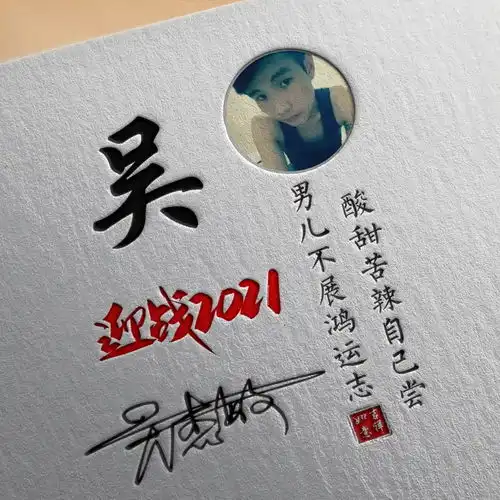 吴
迎战2021
酸甜苦辣自己尝
男儿不展鸿运志
吉祥
如意